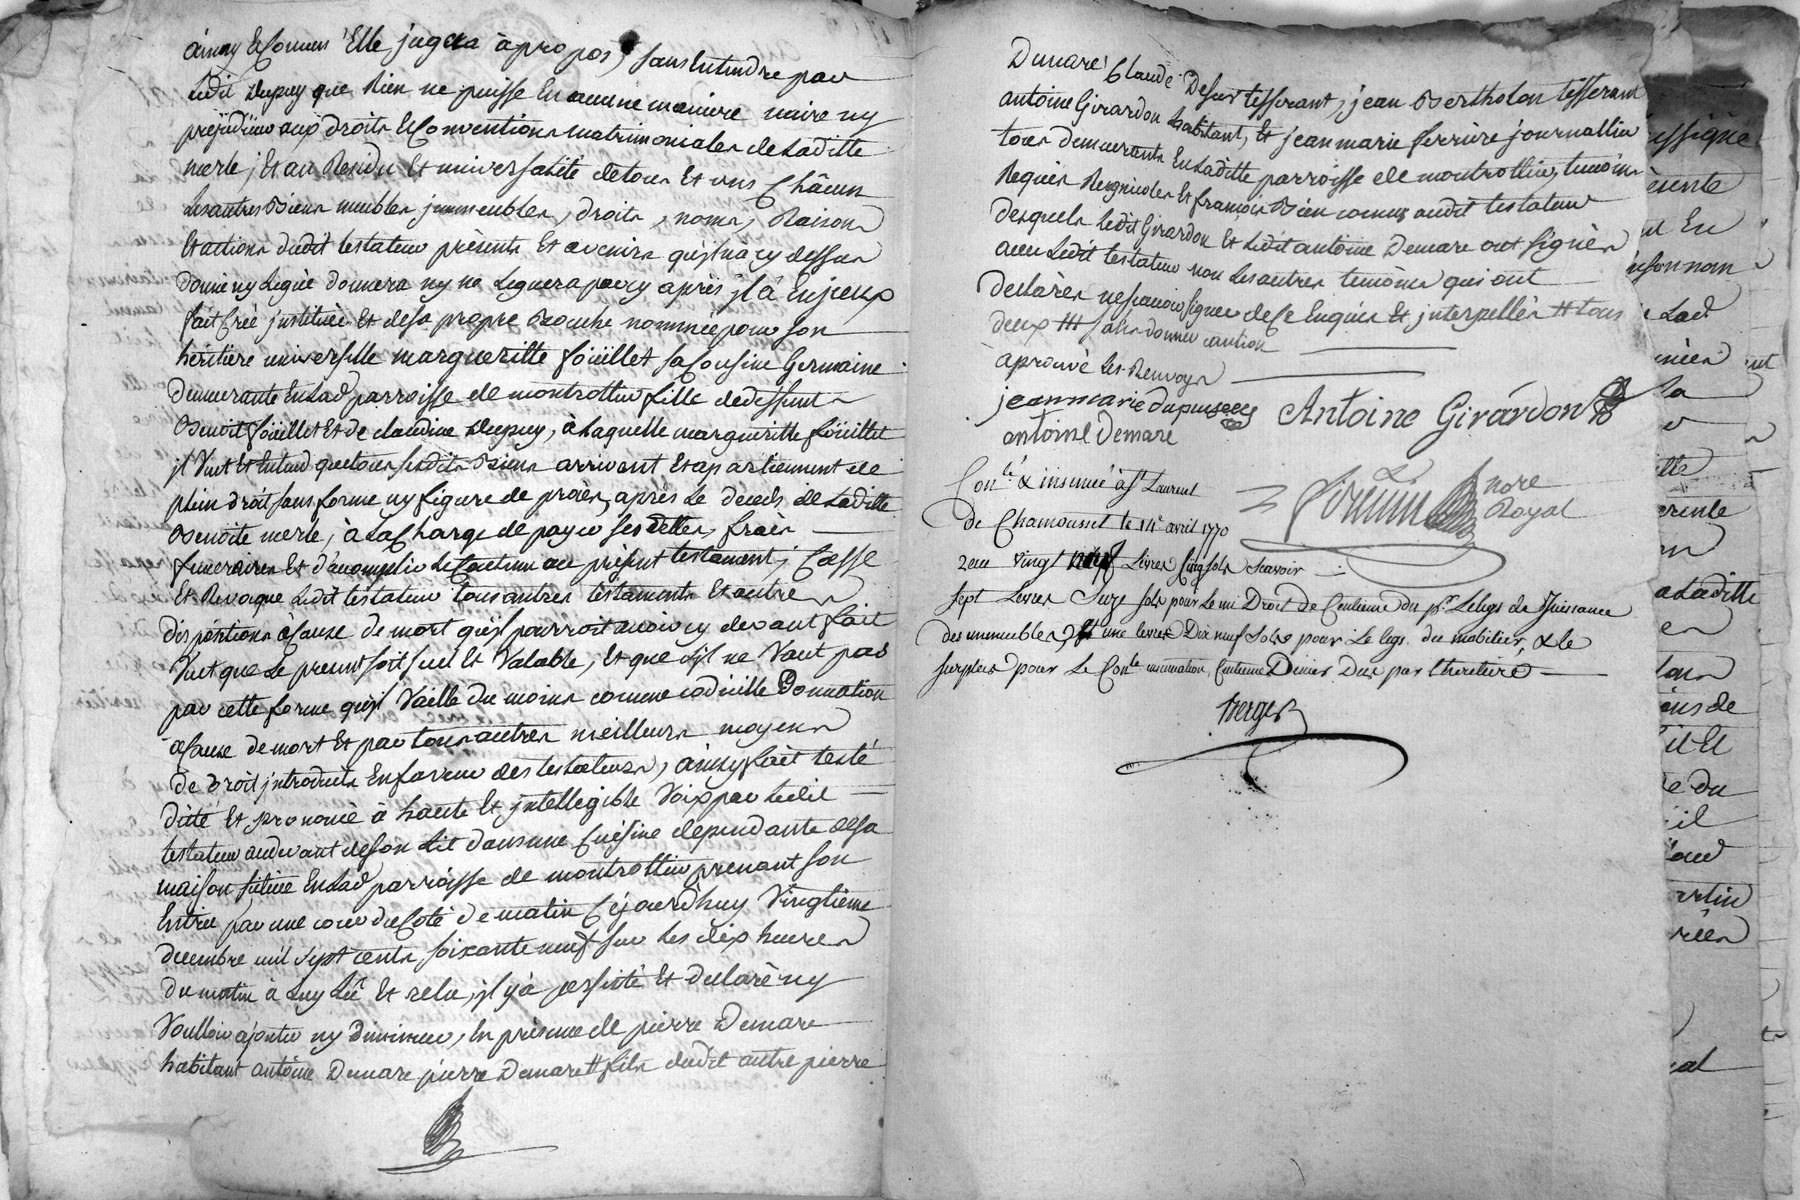 ainsy Et Comme Elle jugera àpropos, sans Entendre par
Ledit Dupuy que Rien ne puisse En aucune maniere nuire ny
préjudicier aux droits Et Conventions matrimoniales de Laditte
merle; Et au Residu Et universalité de tous Et uns Châcun
Les autres Biens meubles jmmeubles, droits, noms, Raisons
Et actions dudit testateur présents Et avenirs qu'il n'a cy dessus
donné ny Legué donnera ny ne Leguera par cy après jl à
fait Créé jnstituée Et de sa propre Bouche nommée pour son
héritiere universelle margueritte foüillet sa Cousine Germaine
demeurante En Lad parroisse de montrottier fille de deffunt
Benoit foüillet Et de claudine Dupuy, à Laquelle margueritte foüillet
jl Veut Et Entend que tous sesdits Biens arrivent Et apartiennent de
plein droit sans forme ny figure de procès, après Le decès de Laditte
Benoite merle, à La Charge de payer ses dettes, frais
funeraires Et d'acomplir Le Contenu au présent testament; Casse
Et Revoque Ledit testateur tous autres testaments Et autres
dispositions à Cause de mort qu'il pourroit avoir cy devant fait
Veut que Le present soit seul Et Valable, Et que s'jl ne Vaut pas
par cette forme qu'jl Vaille du moins comme codicille Donnation
à Cause de mort Et par tous autres meilleurs moyens
de Droit jntroduits En faveur des testateurs, ainsy fait testé
dicté Et prononcé à haute Et jntellegible Voix par Ledit
testateur au devant de son Lit dans une Cuisine dépendante de sa
maison située En Lad parroisse de montrottier prenant son
Entrée par une cour du Coté de matin Cejourd'huy Vingtieme
decembre mil sept cents soixante neuf sur Les dix heures
du matin à Luy Lû Et relu, jl y à persisté Et declaré ny
Voulloir ajouter ny diminuer, En présence de pierre Demare
habitant antoine Demare pierre Demare # fils dudit autre pierre
Demare Claude tisserant, jean Bertholon tisserant
antoine Girardon habitant, Et jean marie ferriere journallier
tous demeurants En Laditte parroisse de montrottier, temoins
Requis Regnicoles Et françois Bien connus audit testateur
desquels Ledit Girardon Et Ledit antoine Demare ont signés
avec Ledit testateur non Les autres temoins qui ont
declarés ne sçavoir signer de Ce Enquis Et jnterpellés # tous
deux ### sans donner caution
àprouvé Les Renvoys
jeanmarie dupuis Antoine Girardon
antoine Demare
nore
Royal
Conlé & insinué à St Laurent
De Chamousset le 14e avril 1770
Receu vingt neuf Livres Cinq sols scavoir
sept Livres Seze sols pour Le mi Droit de Centieme du pt Legs de Juissance
des immeubles, une livre Dix neuf sols pour Le legs du mobilier, & le
surplus pour Le Conle insinuation Centieme Denier Dus par L'heritiere
Berger